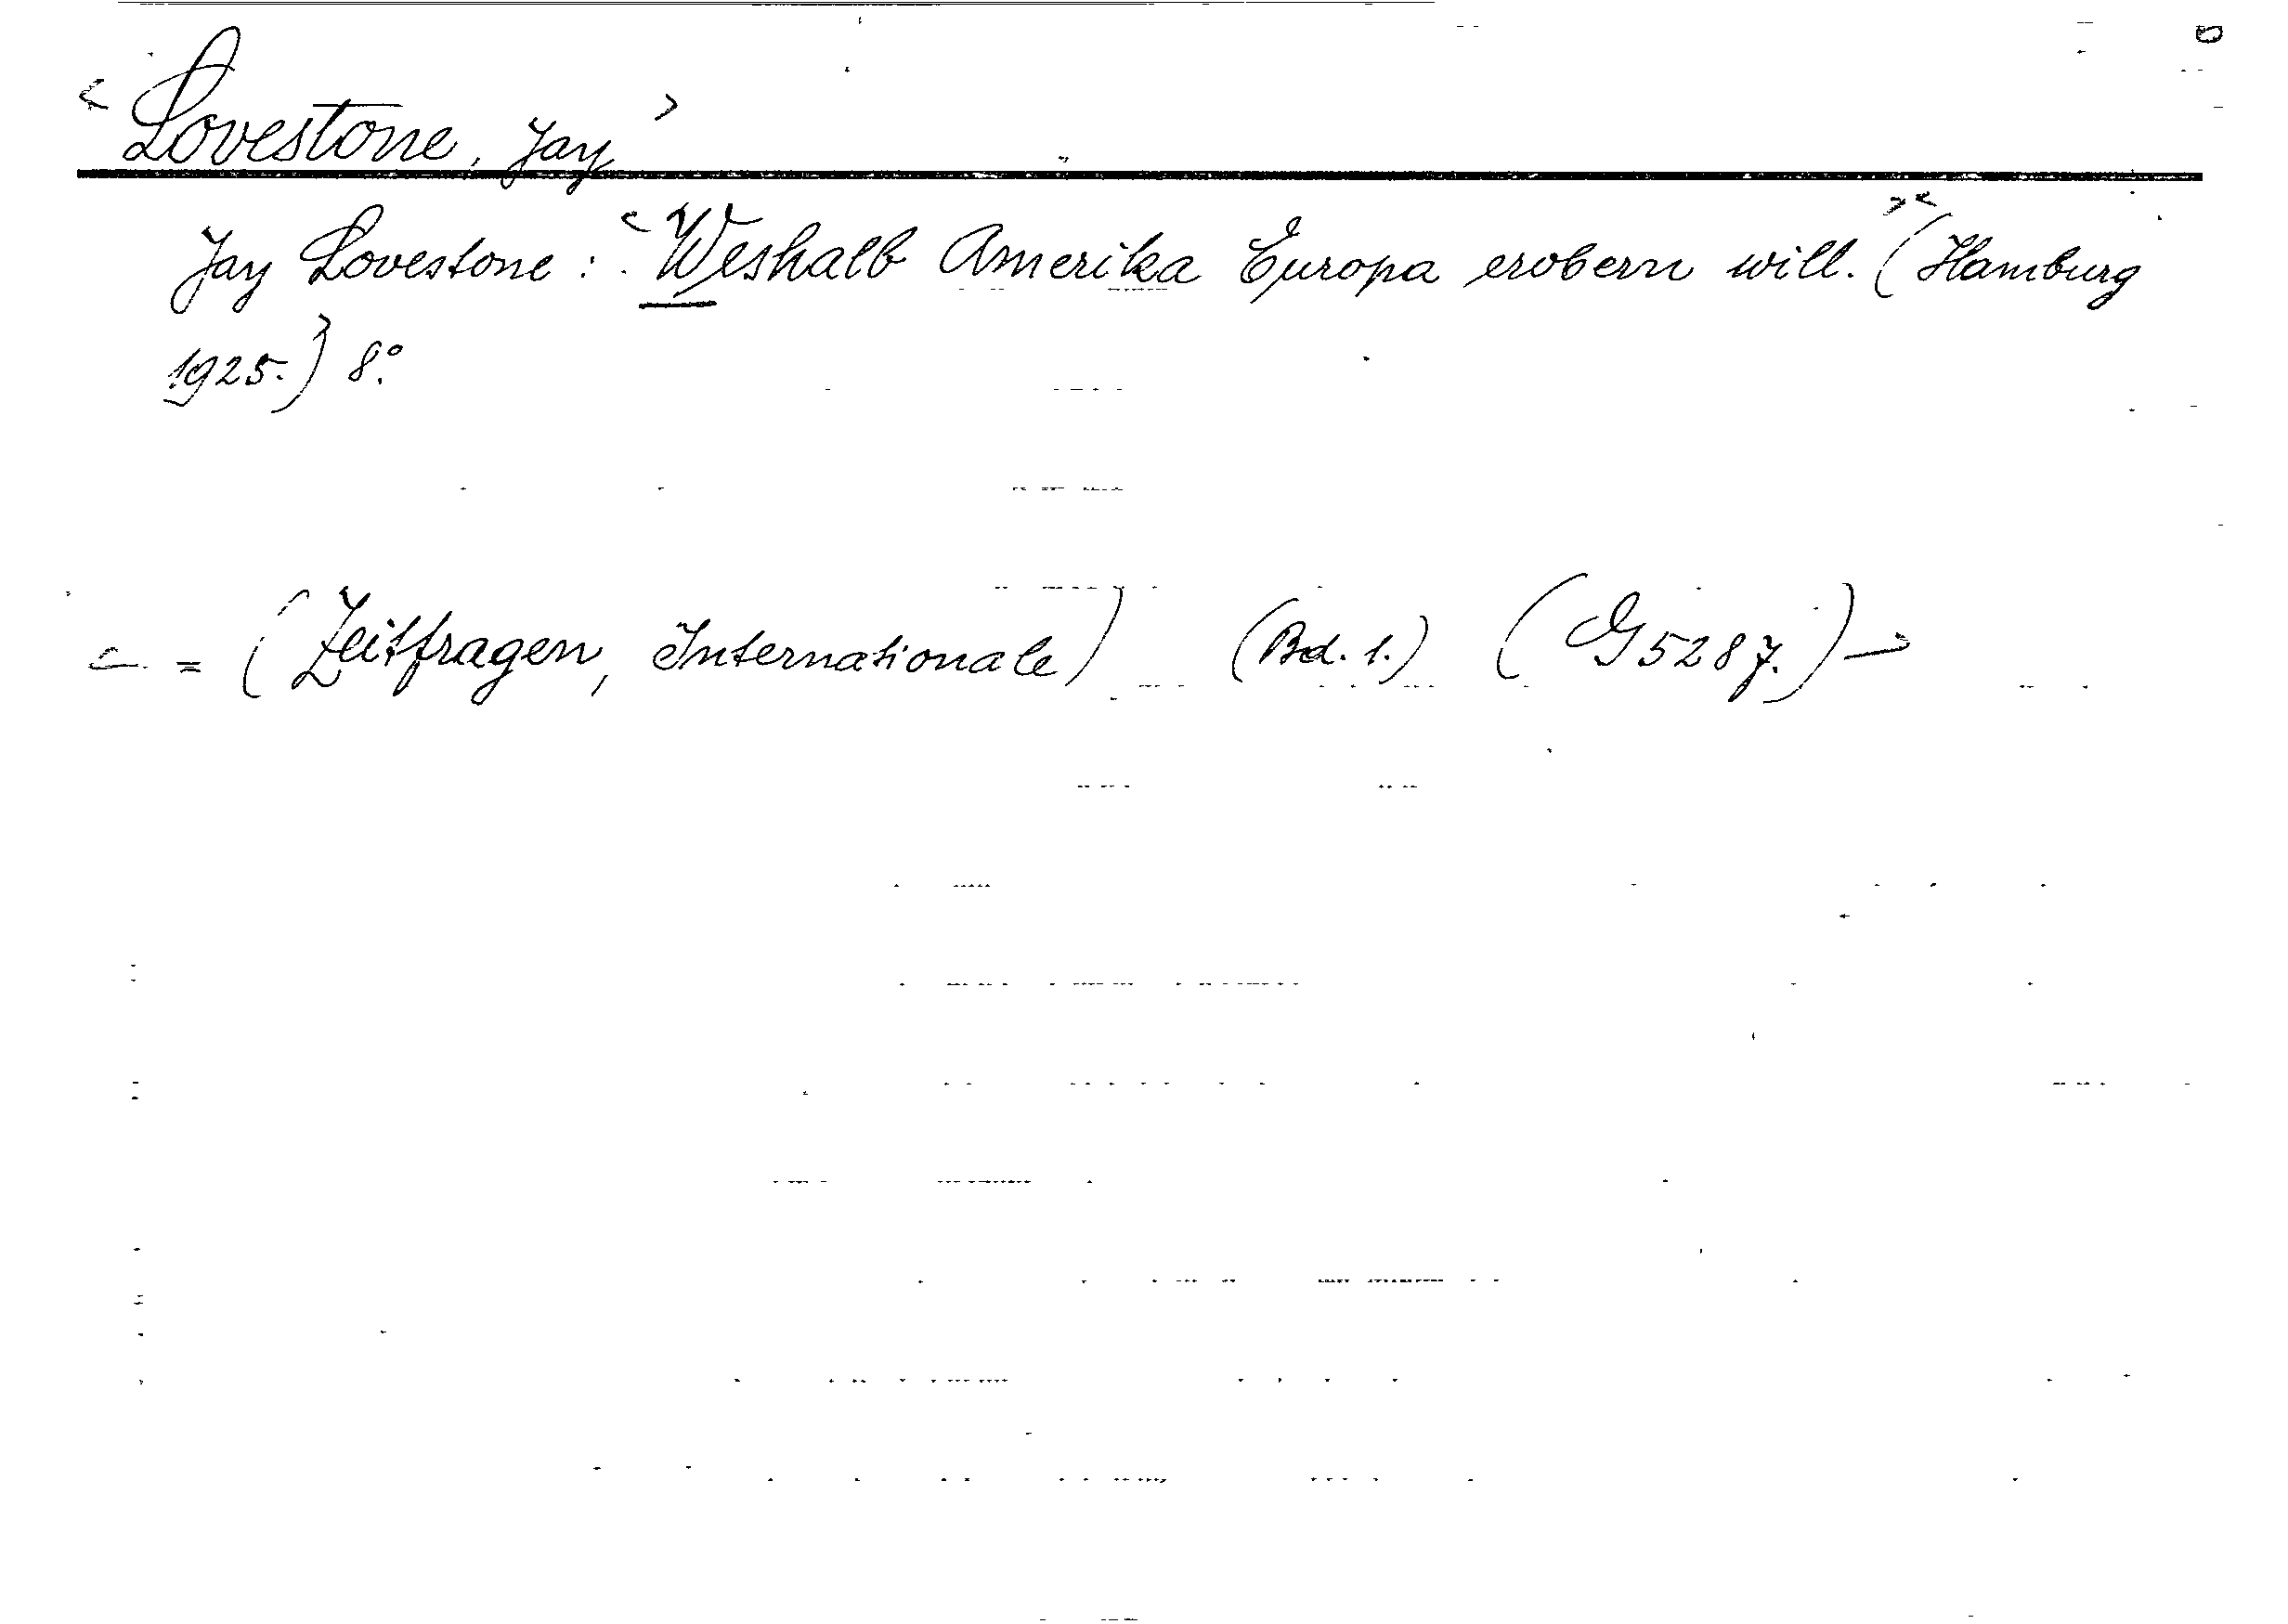 <Lovestone, Jay>
Jay Lovestone: <Weshalb Amerika Europa erobern will.> <(Hamburg
1925.)> 8°.
<= (Zeitfragen, Internationale) (Bd. 1.) (G 5287.)>